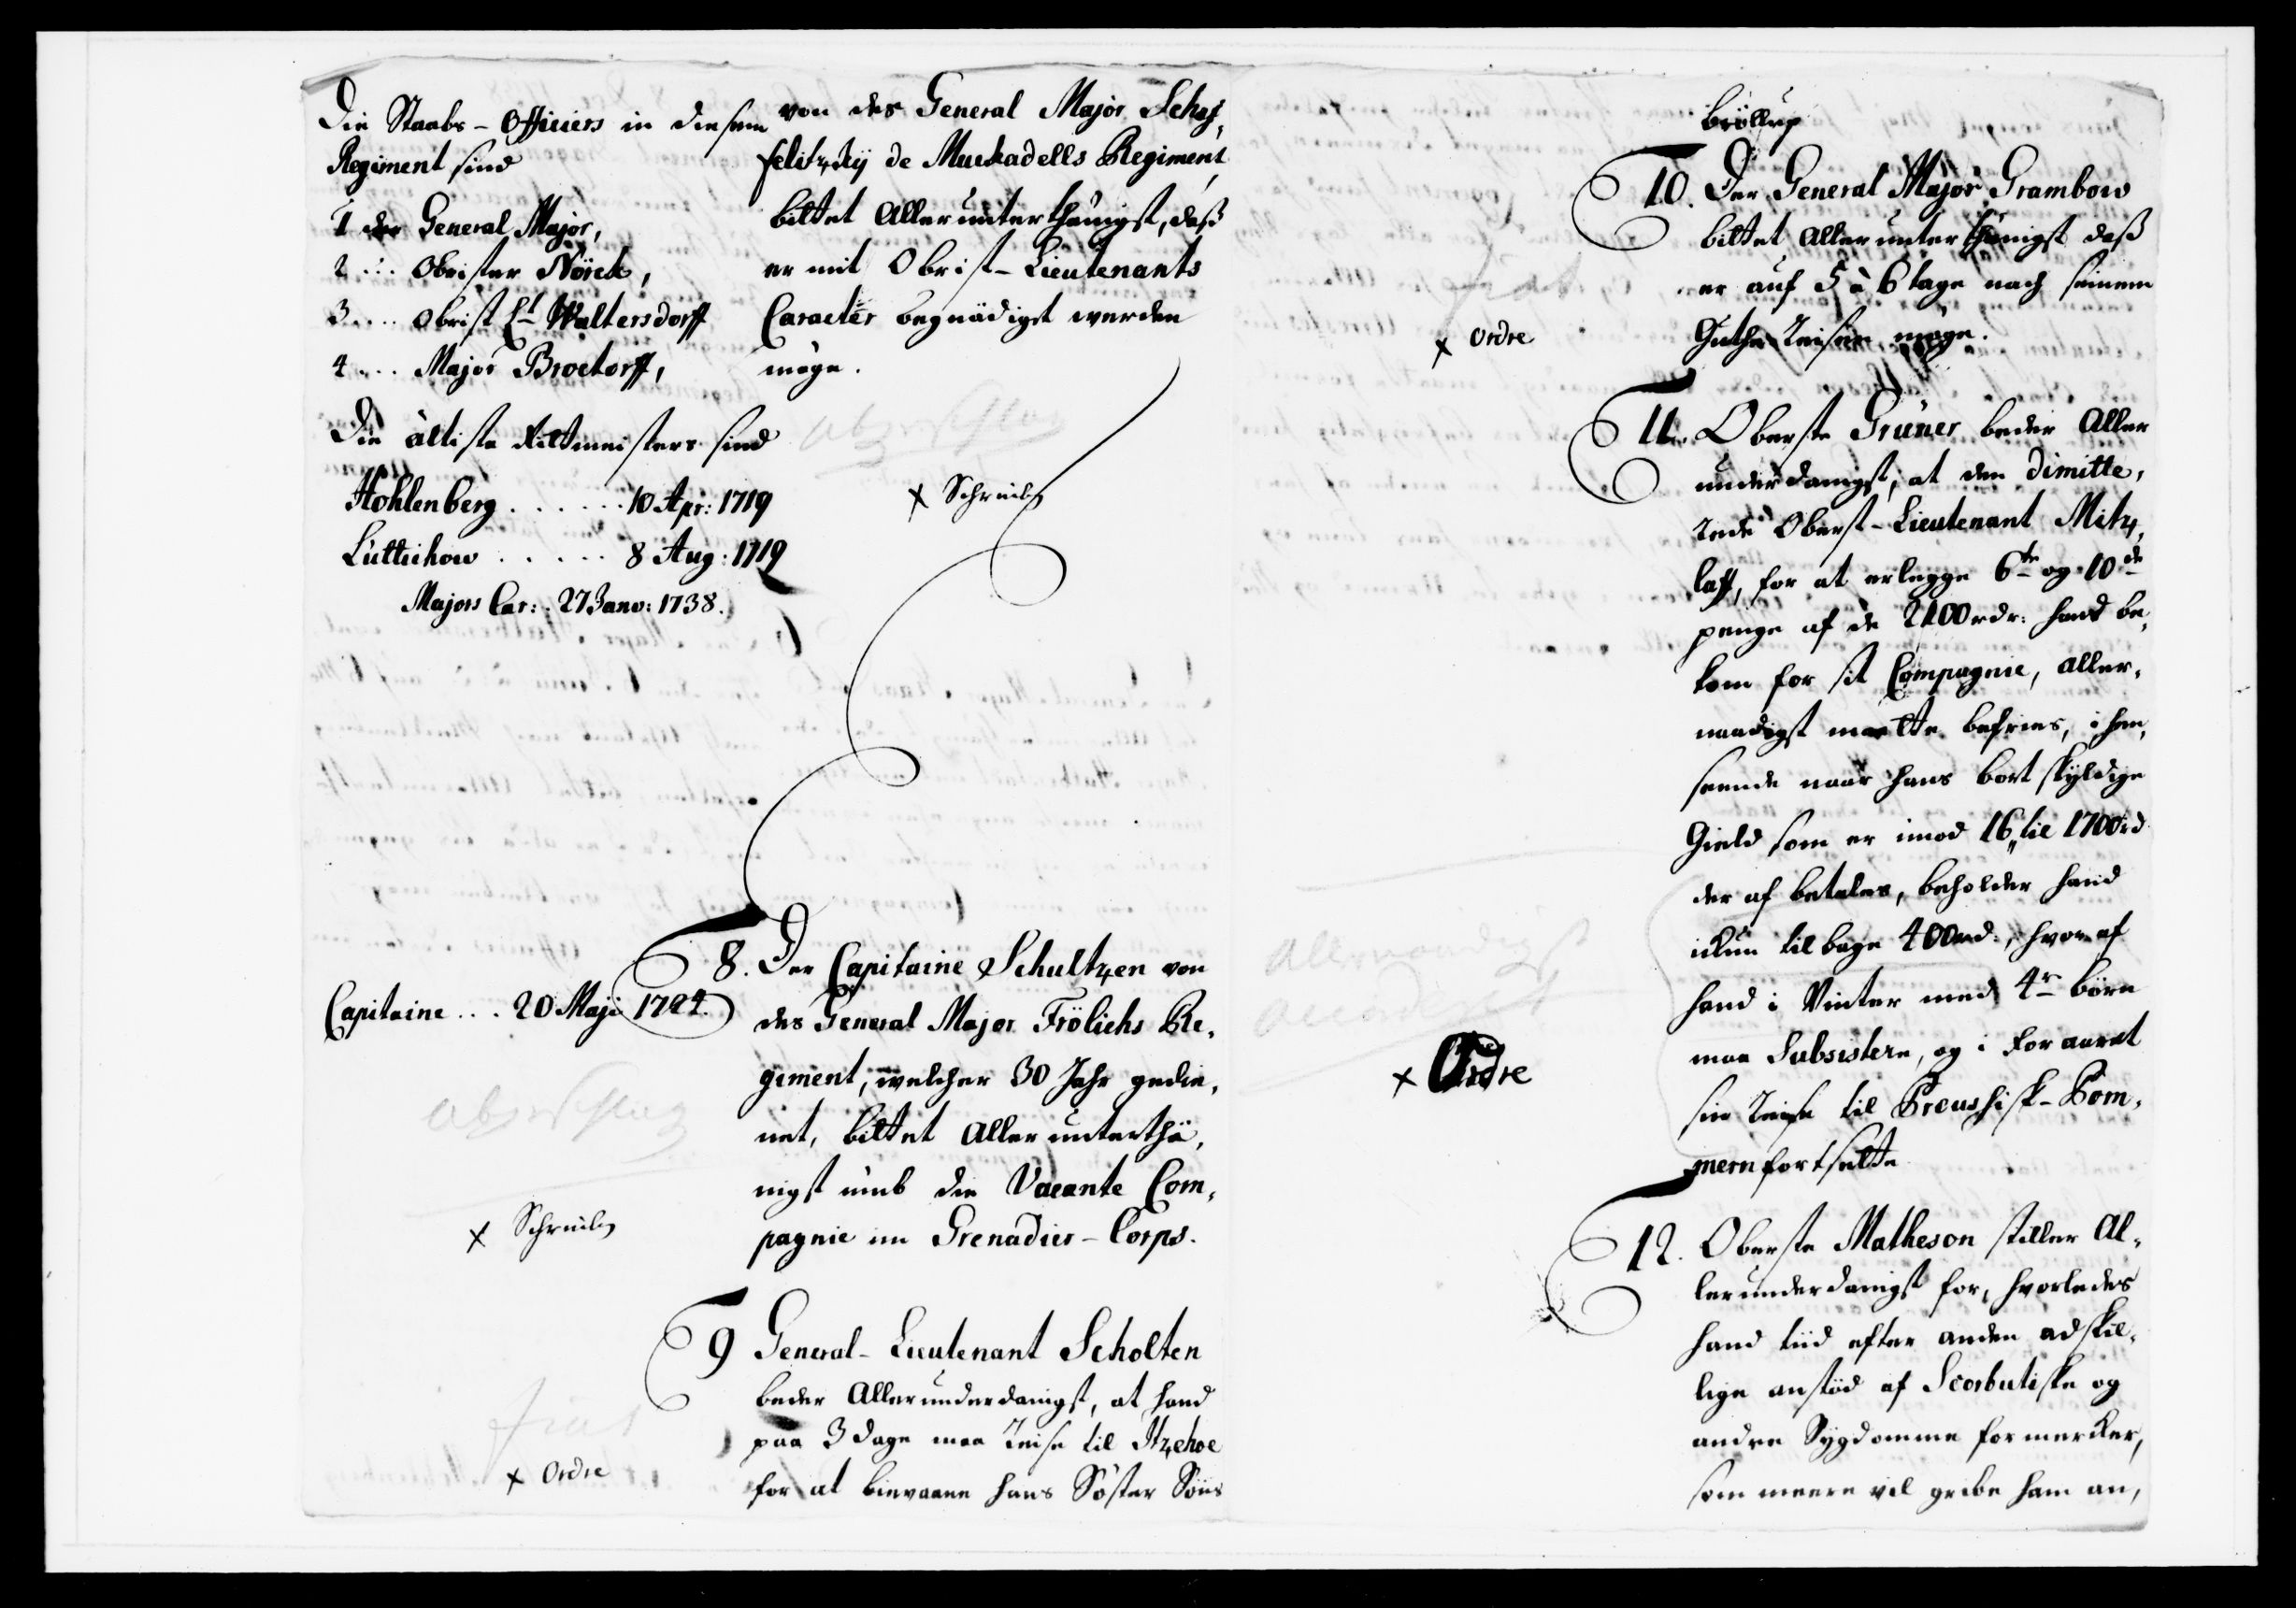 Die Staabs-Officiers in diesem
Regiment sind
1 der General Major,
2 ... Obrister Nörck,
3 .... Obrist Lt Waltersdorff
4 ... Major Brockdorff,
Die ältiste Rittmeisters sind
Hohlenberg . . . . . . 10 Apr: 1719
Lüttichow . . . . . 8 Aug: 1719
Majors Car: 27 Janv: 1738.
von des General Major Schaf,
felitzkÿ de Muckadells Regiment
bittet Allerunterthänigst, daß
er mit Obrist-Lieutenants
Caracter begnädigt werden
möge.
abgeschlag
x Schreiben
Capitaine ... 20 Maji 1724.
abgeschlag
x Schreiben
8. Der Capitaine Schultzen von
des General Major Frölichs Re,
giment, welcher 30 Jahr gedie,
net, bittet Allerunterthä,
nigst umb die Vacante Com,
pagnie im Grenadier-Corps.
fiat
x Ordre
9 General-Lieutenant Scholten
beder Allerunderdanigst, at hand
paa 3 dage maa Reise til Itzehoe
for at bievaane hans Söster Söns
bröllup
fiat
x Ordre
10. Der General Major Grambow
bittet Allerunterthänigst daß
er auf 5 à 6 tage nach seinem
Guthe Reisen möge.
11. Oberste Grüner beder Aller
underdanigst, at den dimitte,
rede Oberst-Lieutenant Mitz,
laff, for at erlegge 6te og 10de
penge af de 2100 rdr: hand be,
kom for sit Compagnie, aller,
naadigst maatte befries, i hen,
seende naar hans bort skÿldige
Gield som er imod 16 til 1700 rd
der af betales, beholder hand
ickun tilbage 400 rd:, hvoraf
hand i Vinter med 4r börn
maa Subsistere, og i Foraaret
sin Reise til Preusshisk-Pom,
mern fortsætte
Allernaadigst
accordert
x Ordre
12. Oberste Matheson stiller Al,
lerunderdanigst for, hvorledes
hand tiid efter anden adskil,
lige anstöd af Scorbutiske og
andre Sÿgdomme formercker,
som meere vil gribe ham an,